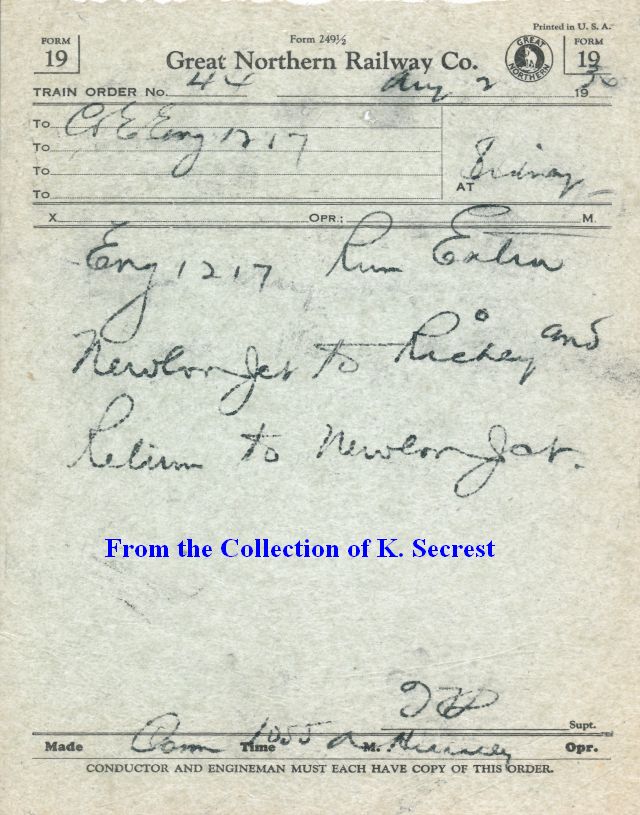 Printed in U. S. A.
FORM 19 Form 249½ FORM 19
Great Northern Railway Co.
GREAT NORTHERN
TRAIN ORDER No. 44 Aug 2 1936
To C&E Eng 1217
To
To
To
AT Sidney
X OPR.; M.
Eng 1217 Run Extra
Newlon Jct to Richey and
Return to Newlon Jct.
From the Collection of K. Secrest
Supt.
Made Com Time 1055 a M. Opr.
CONDUCTOR AND ENGINEMAN MUST EACH HAVE COPY OF THIS ORDER.